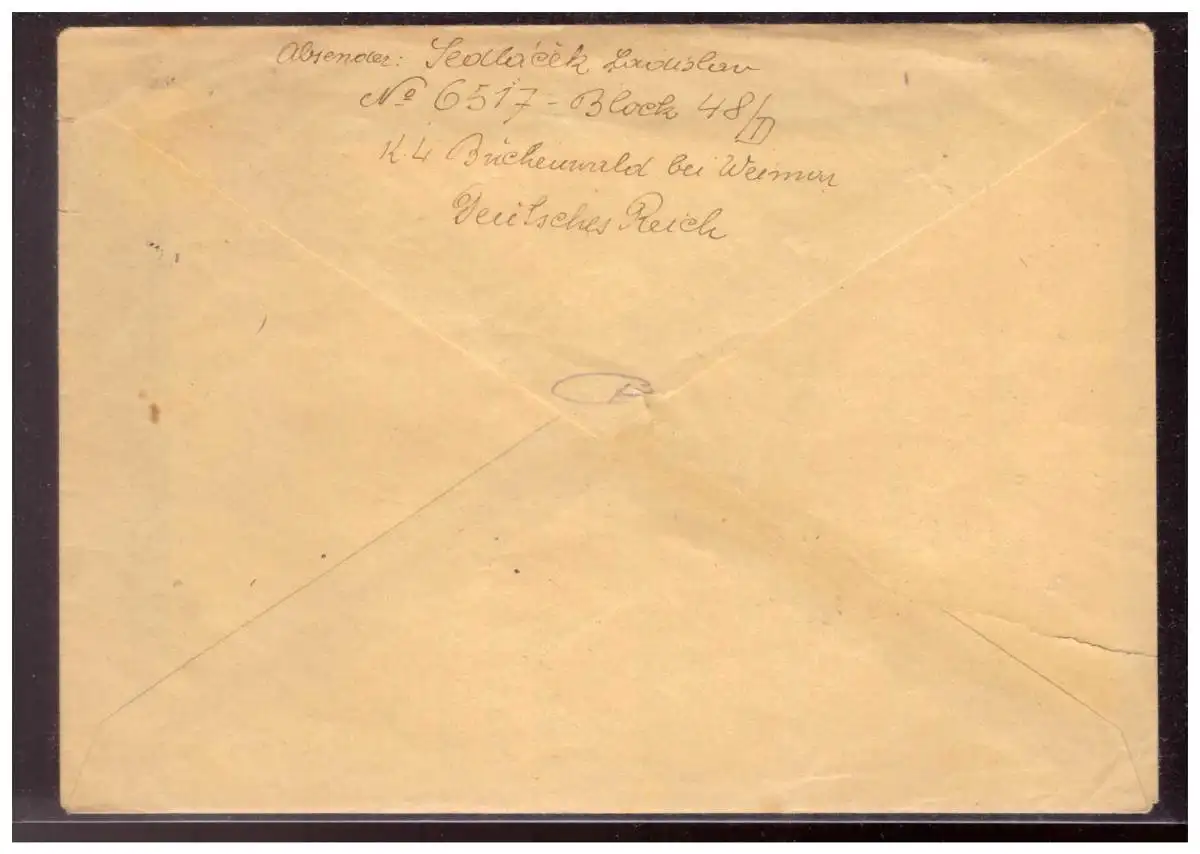 Absender: Sedláček Ladislav
Nº 6517 - Block 48/D
K.L Buchenwald bei Weimar
Deutsches Reich